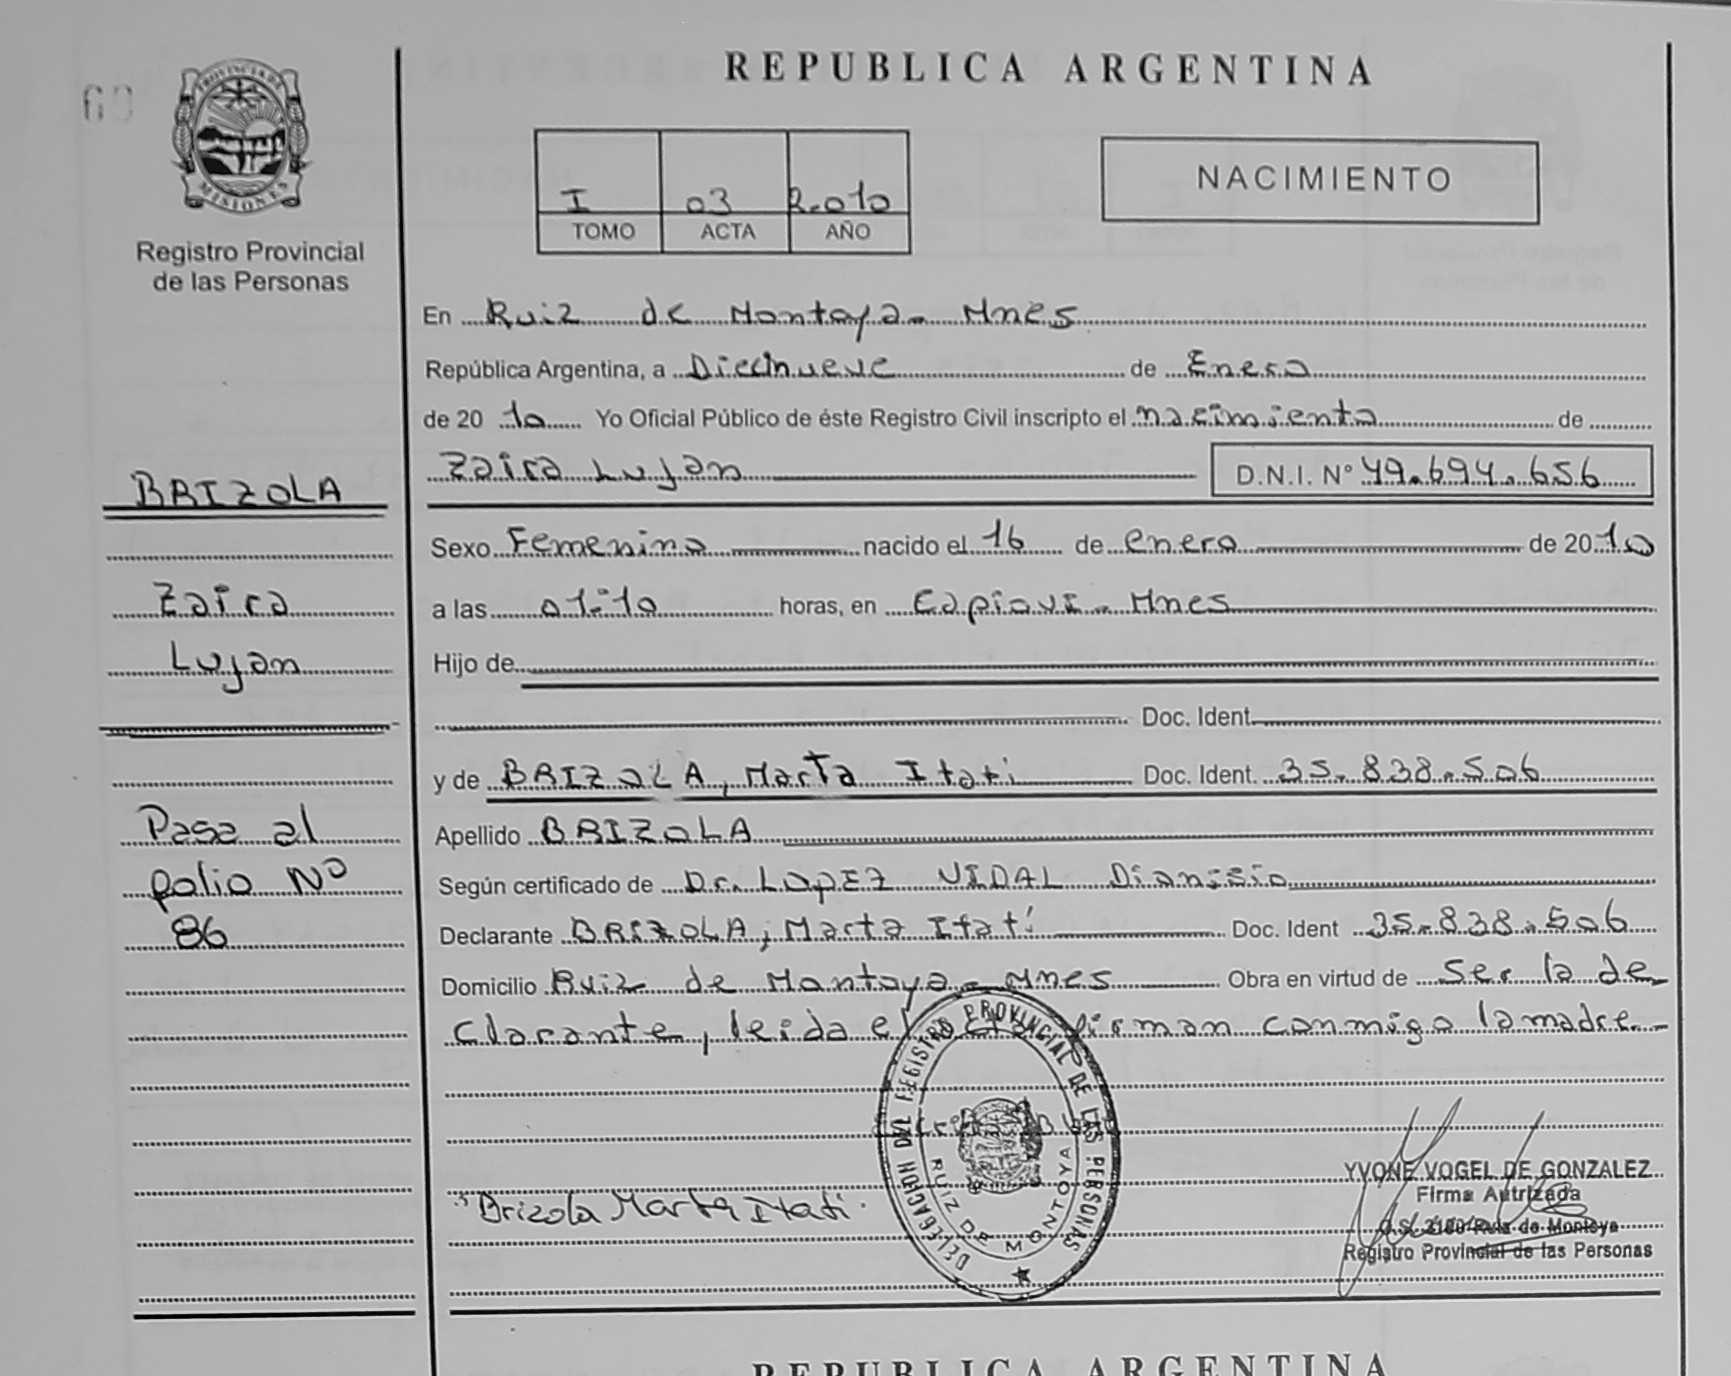 REPUBLICA ARGENTINA
PROVINCIA DE
MISIONES
Registro Provincial
de las Personas
I 03 2.010
TOMO ACTA AÑO
NACIMIENTO
En Ruiz de Montoya - Mnes
República Argentina, a Diecinueve de Enero
de 20 10 Yo Oficial Público de éste Registro Civil inscripto el nacimiento de
Zaira Lujan D.N.I. Nº 49.694.656
BRIZOLA
Zaira
Lujan
Pasa al
folio Nº
86
Sexo Femenino nacido el 16 de enero de 20 10
a las 01:10 horas, en Capiovi - Mnes
Hijo de
Doc. Ident.
y de BRIZOLA, Marta Itati Doc. Ident. 35.838.506
Apellido BRIZOLA
Según certificado de Dr. LOPEZ VIDAL Dionisio
Declarante BRIZOLA, Marta Itatí Doc. Ident 35.838.506
Domicilio Ruiz de Montoya - Mnes Obra en virtud de ser la de-
clarante, leida el acta firman conmigo la madre.-
Brizola Marta Itati.
DELEGACION DEL REGISTRO PROVINCIAL DE LAS PERSONAS
RUIZ DE MONTOYA
YVONE VOGEL DE GONZALEZ
Firma Autrizada
Ruiz de Montoya
Registro Provincial de las Personas
REPUBLICA ARGENTINA